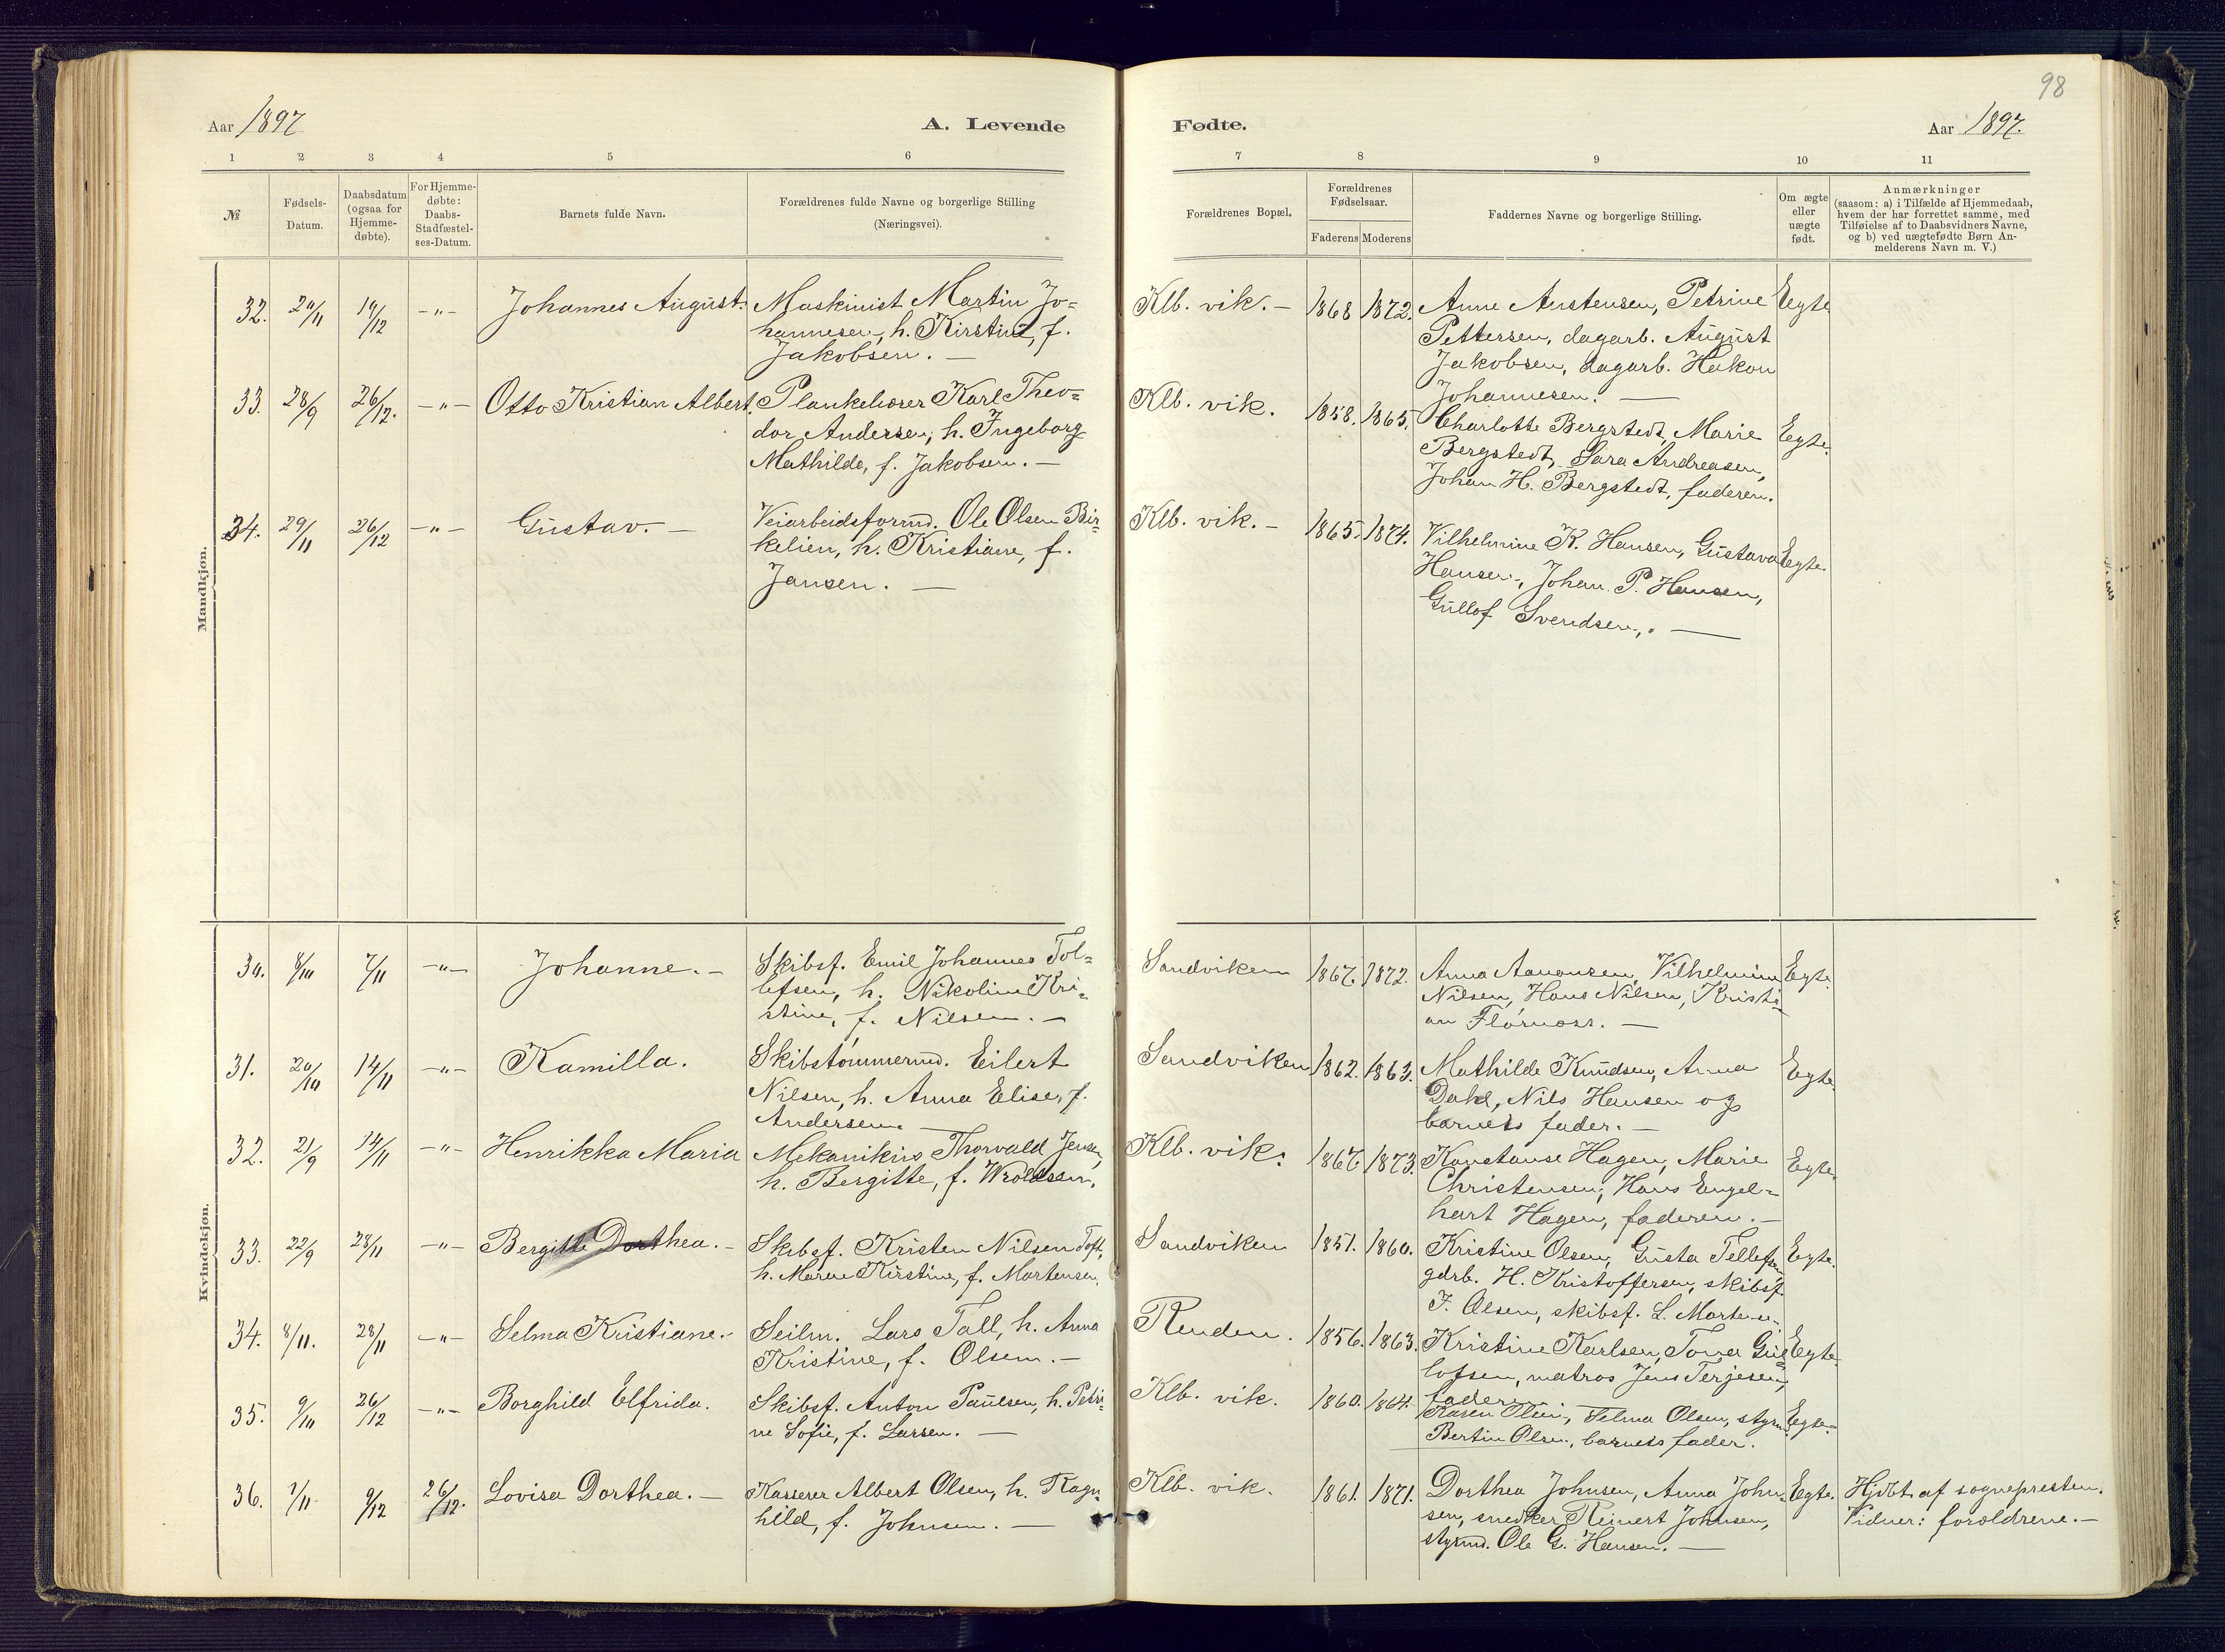 98
Aar 1897
A. Levende
Fødte.
Aar 1897.
1 2 3 4 5 6 7 8 9 10 11
№
Fødsels-
Datum.
Daabsdatum
(ogsaa for
Hjemme-
døbte).
For Hjemme-
døbte:
Daabs-
Stadfæstel-
ses-Datum.
Barnets fulde Navn.
Forældrenes fulde Navne og borgerlige Stilling
(Næringsvei).
Forældrenes Bopæl.
Forældrenes
Fødselsaar.
Faderens Moderens
Faddernes Navne og borgerlige Stilling.
Om ægte
eller
uægte
født.
Anmærkninger
(saasom: a) i Tilfælde af Hjemmedaab,
hvem der har forrettet samme, med
Tilføielse af to Daabsvidners Navne,
og b) ved uægtefødte Børn An-
melderens Navn m. V.)
Mandkjøn.
32. 20/11 19/12 -"- Johannes August. Maskinist Martin Jo= Klb. vik. - 1868 1872. Anne Austensen, Petrine Egte
hannesen, h. Kirstine, f. Pettersen, dagarb. August
Jakobsen. - Jakobsen, dagarb. Hakon
Johannesen. -
33. 28/9 26/12. -"- Otto Kristian Albert. Plankebærer Karl Theo= Klb. vik. 1858. 1865. Charlotte Bergstedt, Marie Egte.
dor Andersen, h. Ingeborg Bergstedt, Sara Andreasen,
Mathilde, f. Jakobsen. - Johan H. Bergstedt, faderen.
34. 29/11 26/12 -"- Gustav. - Veiarbeidsformd. Ole Olsen Bir= Klb. vik. - 1865. 1874. Vilhelmine K. Hansen, Gustava Egte.
kelien, h. Kristiane, f. Hansen, Johan P. Hansen,
Jansen. - Gullof Svendsen. -
Kvindekjøn.
30. 8/10 7/11 -"- Johanne. - Skibsf. Emil Johannes Tol= Sandviken 1867. 1872. Anna Aanonsen, Vilhelmine Egte.
lefsen, h. Nikoline Kri= Nilsen, Hans Nilsen, Kristi=
stine, f. Nilsen. - an Flørnæss. -
31. 20/10 14/11 -"- Kamilla. Skibstømmermd. Eilert Sandviken 1862. 1863. Mathilde Knudsen, Anna Egte.
Nilsen, h. Anna Elise, f. Dahl, Nils Hansen og
Andersen. - barnets fader. -
32. 21/9 14/11 -"- Henrikka Maria Mekanikus Thorvald Jensen, Klb. vik. 1867. 1873. Konstanse Hagen, Marie Egte.
h. Bergitte, f. Wroldsen. Christensen, Hans Engel=
hart Hagen, faderen. -
33. 22/9 28/11 -"- Bergitte Dorthea. - Skibsf. Kristen Nilsen Toft, Sandviken 1851. 1860. Kristine Olsen, Gusta Tellefsen Egte.
h. Maren Kirstine, f. Mortensen. gdrb. H. Kristoffersen, skibsf.
J. Olsen, skibsf. L. Mortensen.
34. 8/11. 28/11 -"- Selma Kristiane. - Seilm. Lars Tall, h. Anna Renden. 1856. 1863. Kristine Karlsen, Tona Gul Egte.
Kristine, f. Olsen. - lofsen, matros Jens Terjesen,
fader.
35. 9/10 26/12 -"- Borghild Elfrida. Skibsf. Anton Paulsen, h. Petri= Klb. vik. 1860. 1864. Karen Olsen, Selma Olsen, styrmd. Egte.
ne Sofie, f. Larsen. - Bertin Olsen, barnets fader.
36. 1/11 9/12 26/12. Lovisa Dorthea. - Kasserer Albert Olsen, h. Ragn= Klb. vik. 1861. 1871. Dorthea Johnsen, Anna John= Egte. Hjdbt. af sognepresten.
hild, f. Johnsen. - sen, snedker Reinert Johnsen, Vidner: forældrene. -
styrmd. Ole G. Hansen. -